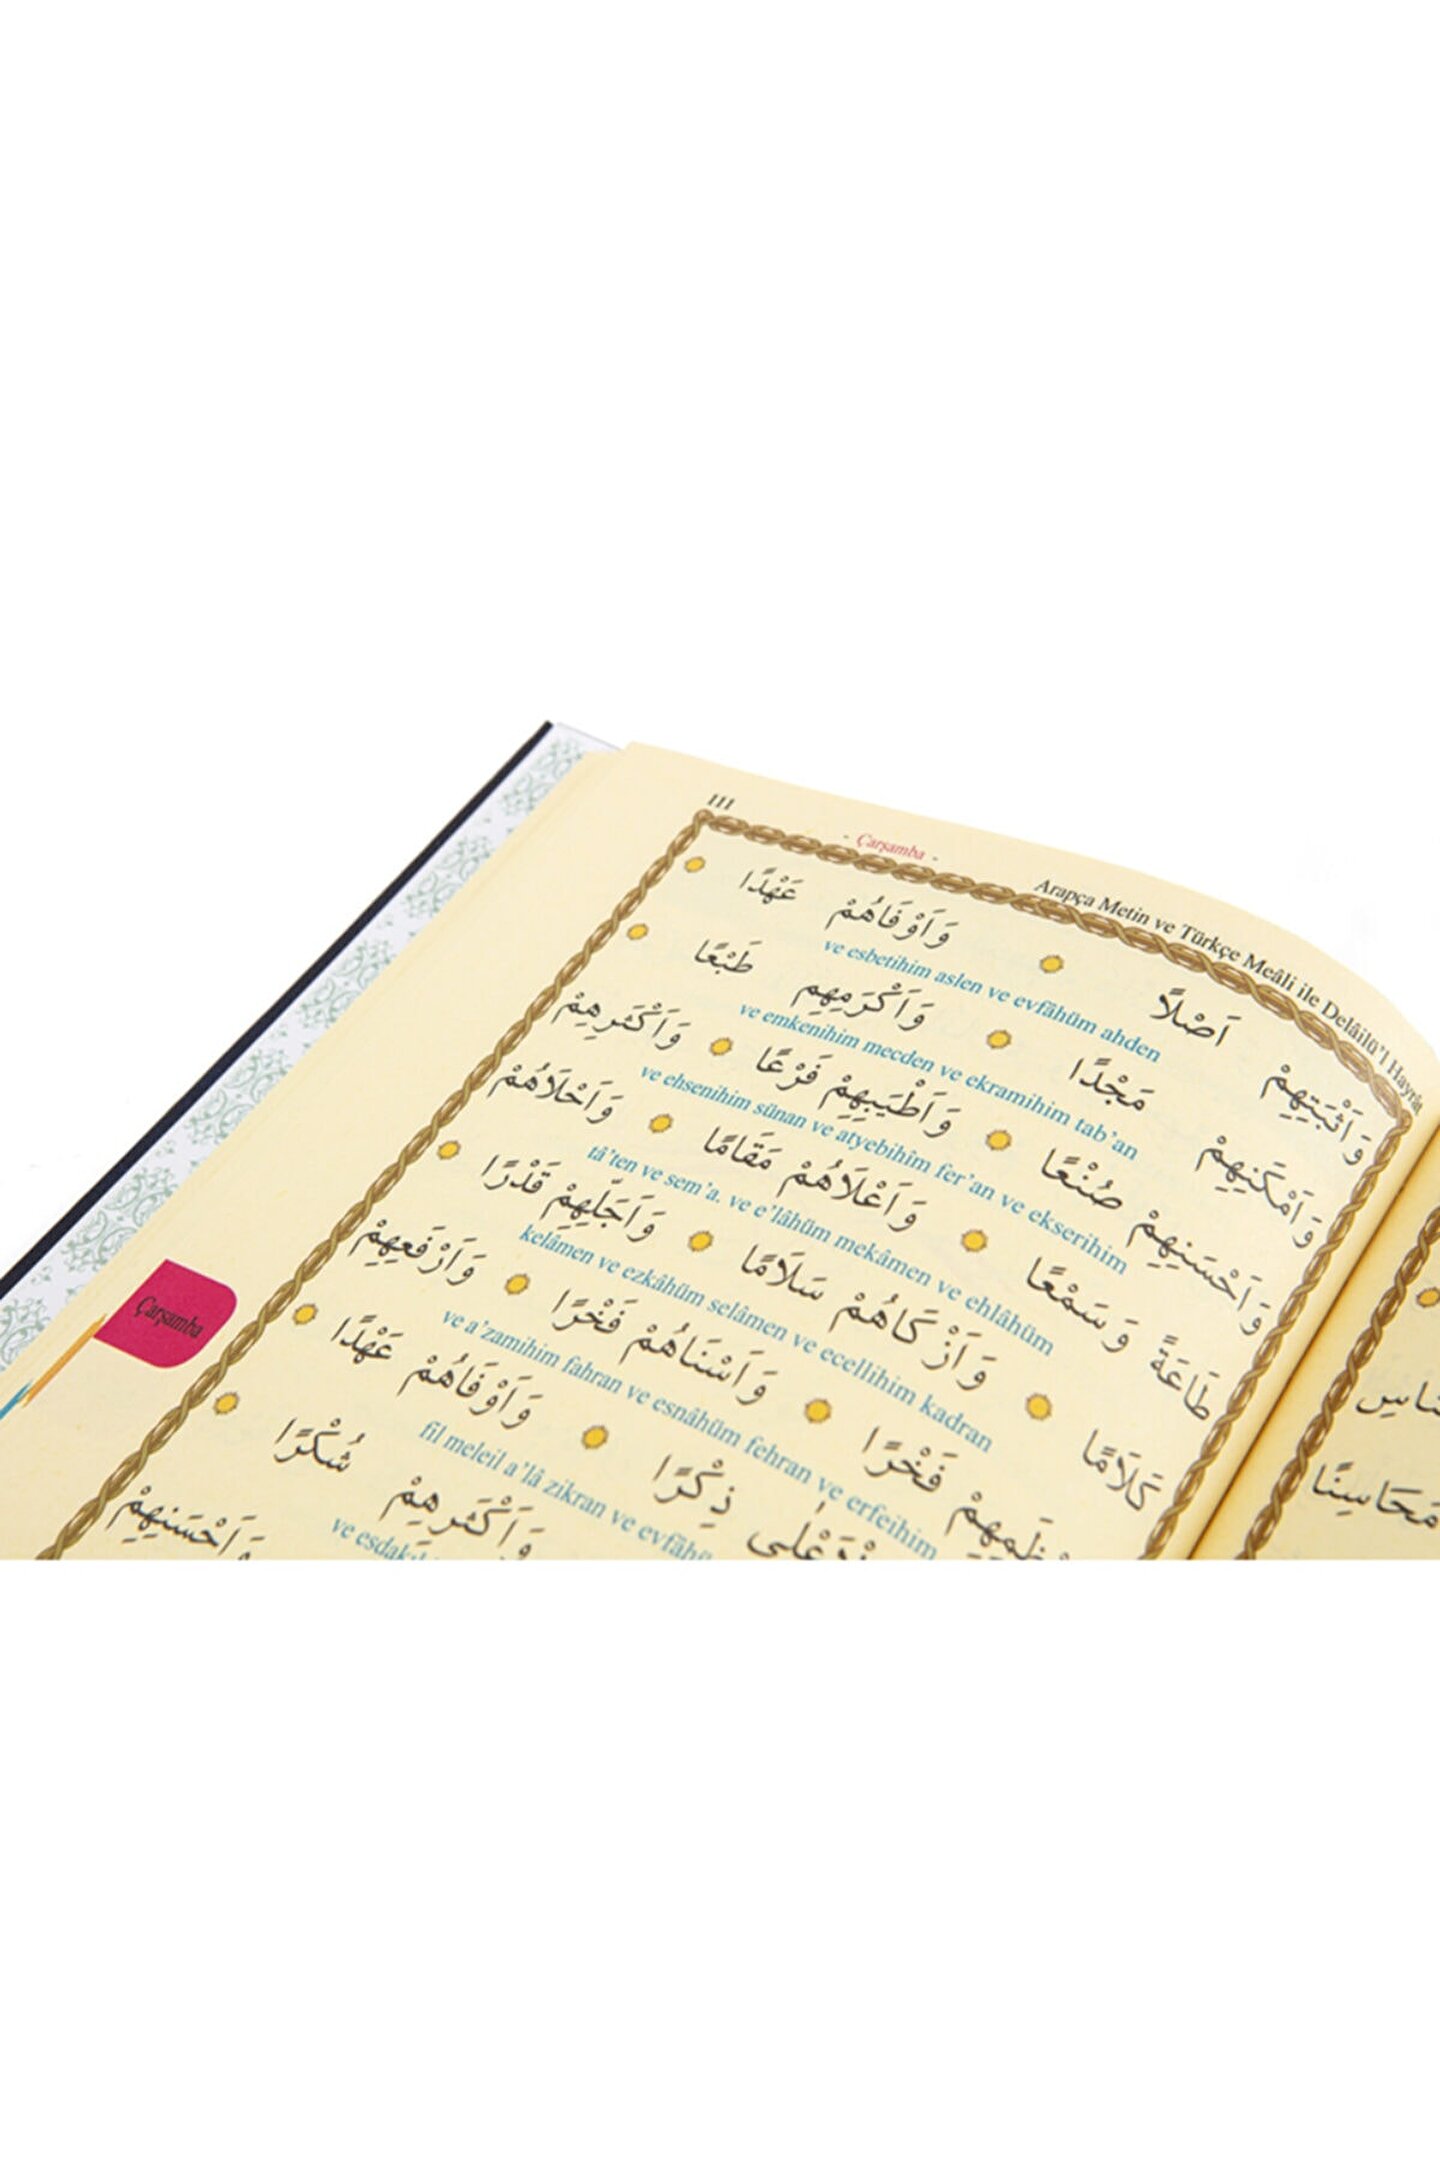 111
- Çarşamba -
Arapça Metin ve Türkçe Meâli ile Delâilü'l Hayrât
وَاَثْبَتِهِمْ اَصْلًا وَاَوْفَاهُمْ عَهْدًا
ve esbetihim aslen ve evfâhüm ahden
وَاَمْكَنِهِمْ مَجْدًا وَاَكْرَمِهِم طَبْعًا
ve emkenihim mecden ve ekramihim tab'an
وَاَحْسَنِهِمْ صُنْعًا وَاَطْيَبِهِمْ فَرْعًا وَاَكْثَرِهِمْ
ve ehsenihim sünan ve atyebihim fer'an ve ekserihim
طَاعَةً وَسَمْعًا وَاَعْلَاهُمْ مَقَامًا وَاَحْلَاهُمْ
tâ'ten ve sem'a. ve e'lâhüm mekâmen ve ehlâhüm
كَلَامًا وَاَزْكَاهُمْ سَلَامًا وَاَجَلِّهِمْ قَدْرًا
kelâmen ve ezkâhüm selâmen ve ecellihim kadran
فَخْرًا وَاَسْنَاهُمْ فَخْرًا وَاَرْفَعِهِمْ
ve a'zamihim fahran ve esnâhüm fehran ve erfeihim
ذِكْرًا وَاَوْفَاهُمْ عَهْدًا
fil meleil a'lâ zikran ve evfâhü
وَاَكْثَرِهِمْ شُكْرًا
ve esdak
وَاَحْسَنِهِمْ
Çarşamba
مَحَاسِنًا